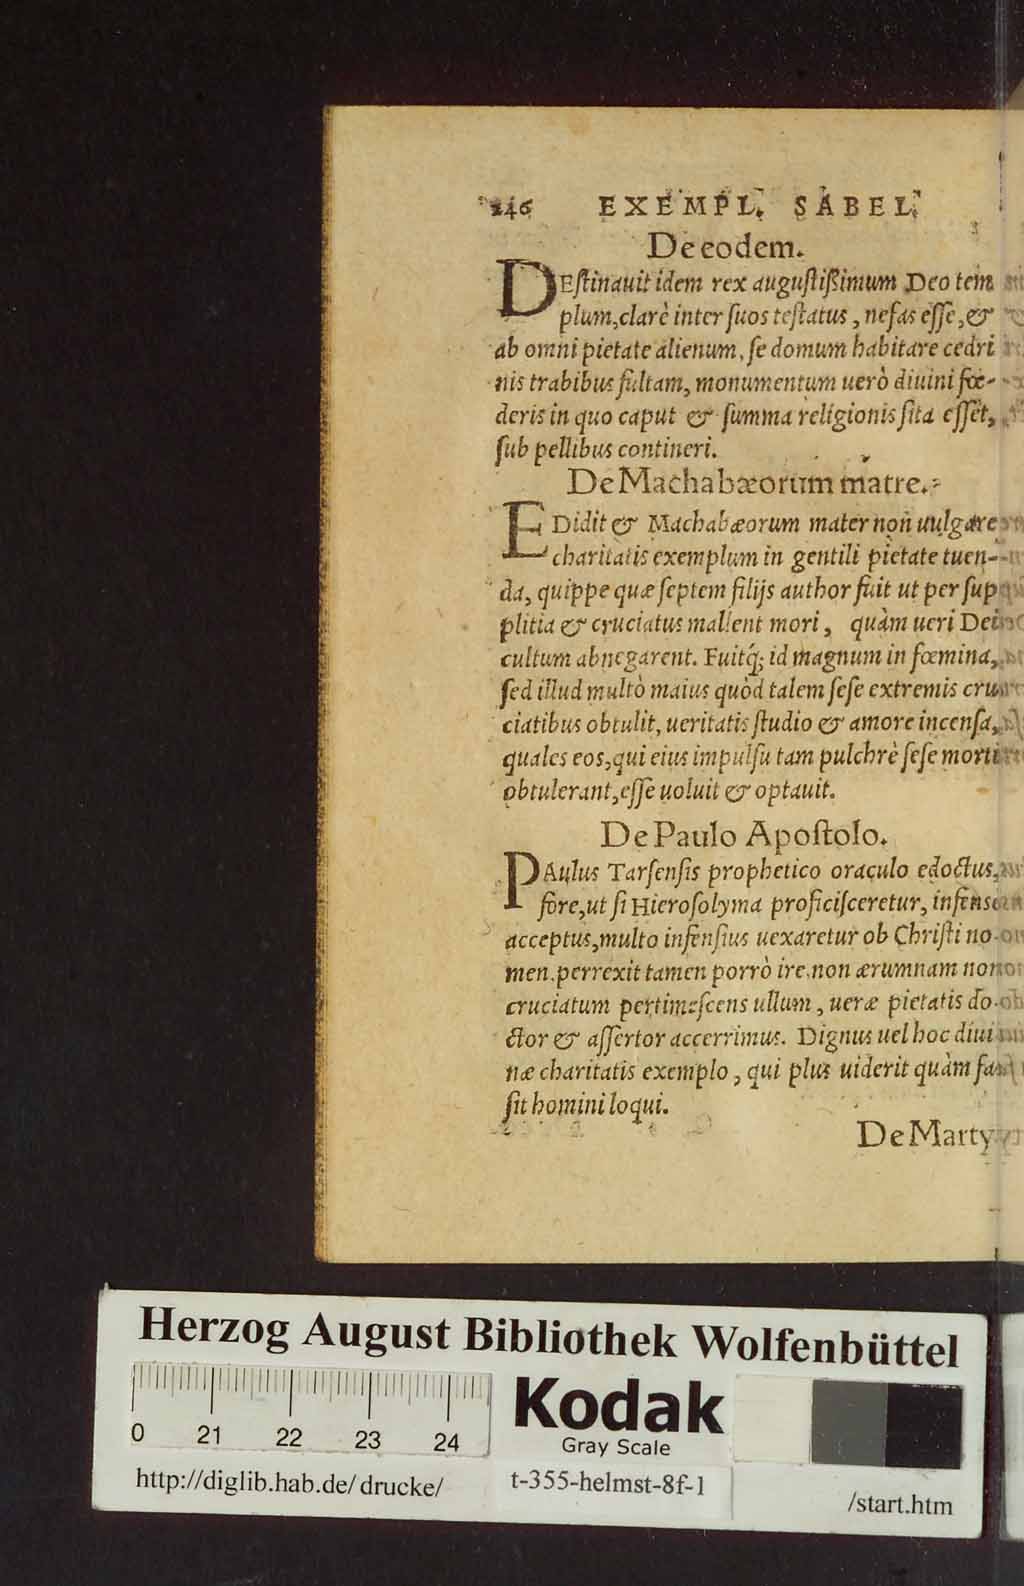 246 EXEMPL. SABEL.
De eodem.
DEſtinauit idem rex auguſtißimum Deo tem
plum, clarè inter ſuos teſtatus, nefas eſſe, &
ab omni pietate alienum, ſe domum habitare cedri
nis trabibus fultam, monumentum uerò diuini fœ-
deris in quo caput & ſumma religionis ſita eſſet,
ſub pellibus contineri.
De Machabæorum matre.
EDidit & Machabæorum mater non uulgare
charitatis exemplum in gentili pietate tuen-
da, quippe quæ ſeptem filijs author fuit ut per ſup
plitia & cruciatus mallent mori, quàm ueri Dei
cultum abnegarent. Fuitq́; id magnum in fœmina,
ſed illud multò maius quòd talem ſeſe extremis cru
ciatibus obtulit, ueritatis ſtudio & amore incenſa,
quales eos, qui eius impulſu tam pulchrè ſeſe morti
obtulerant, eſſe uoluit & optauit.
De Paulo Apoſtolo.
PAulus Tarſenſis prophetico oraculo edoctus,
fore, ut ſi Hieroſolyma proficiſceretur, infense
acceptus, multo infenſius uexaretur ob Chriſti no
men. perrexit tamen porrò ire, non ærumnam non
cruciatum pertimeſcens ullum, ueræ pietatis do-
ctor & aſſertor accerrimus. Dignus uel hoc diui
næ charitatis exemplo, qui plus uiderit quàm fas
ſit homini loqui.
De Marty
Herzog August Bibliothek Wolfenbüttel
0 21 22 23 24
Kodak
Gray Scale
http://diglib.hab.de/drucke/
t-355-helmst-8f-1
/start.htm